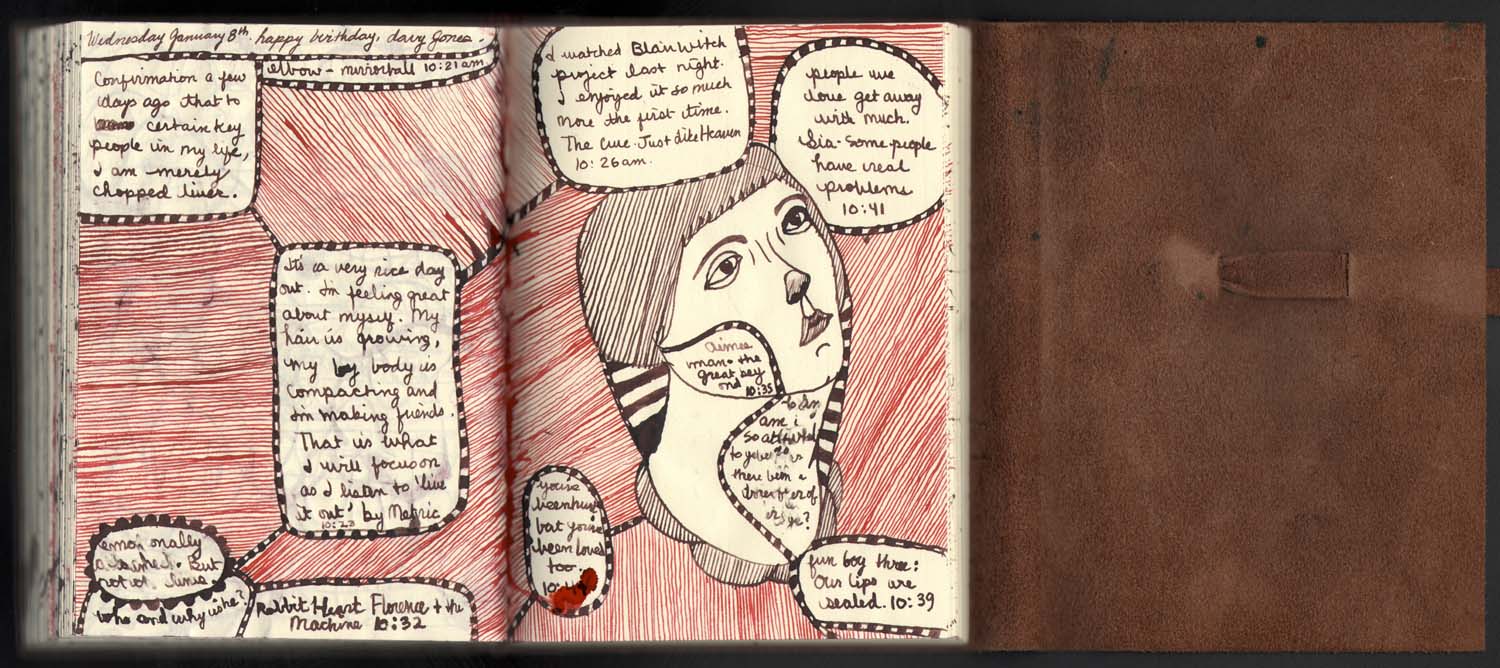 Wednesday January 8th. happy birthday, davy jones.
elbow - mirrorball 10:21am
Confirmation a few
days ago that to
certain key
people in my life,
I am merely
chopped liver.
It's a very nice day
out. I'm feeling great
about myself. My
hair is growing,
my body is
compacting and
I'm making friends.
That is what
I will focus on
as I listen to 'live
it out' by Metric
10:23
emotionally
But
who and why is he?
Rabbit Heart Florence + the
Machine 10:32
I watched Blair Witch
project last night.
I enjoyed it so much
more the first time.
The Cure - Just like Heaven
10:26am.
people we
love get away
with much.
Sia - Some people
have real
problems
10:41
aimee
man - the
great bey
ond 10:35
am i
so
there been a
of
you've
been
but you've
been loved
too.
fun boy three:
Our lips are
sealed. 10:39